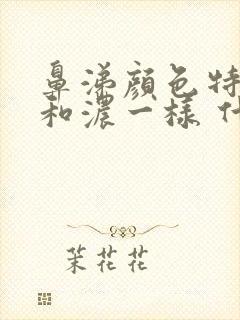 鼻涕顏色特
和濃一樣 什
茉花花